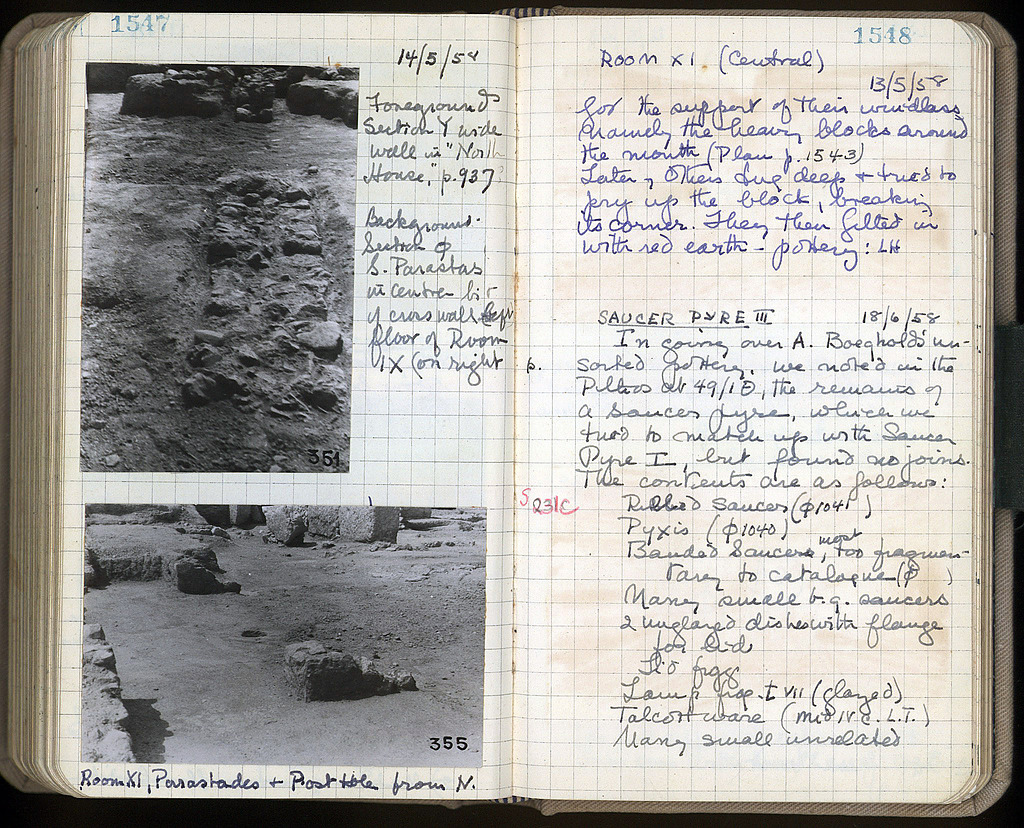 1547
14/5/58
Foreground
Section Y wide
wall in "North
House," p.937
Background.
Section of
S. Parastas
in centre bit
of cross wall left
floor of Room
IX (on right
351
355
Room XI, Parastades + Post Hole from N.
1548
Room XI (Central)
13/5/58
for the support of their windlass,
namely the heavy blocks around
the mouth (Plan p.1543)
Later, others dug deep + tried to
pry up the block, breaking
its corner. They then filled in
with red earth - pottery: LH
SAUCER PYRE III 18/6/58
In going over A. Boegholds' un-
p. sorted pottery, we noted in the
Pithos at 49/ΙΘ, the remains of
a saucer pyre, which we
tried to match up with Saucer
Pyre I, but found no joins.
The contents are as follows:
S 231C
Ribbed Saucer (φ1041 )
Pyxis (φ1040)
Banded Saucers, most too fragmen-
tary to catalogue (φ )
Many small b.g. saucers
2 unglazed dishes with flange
for lid
Lid frgg
Lamp frg. t VII (glazed)
Talcott ware (mid IV c. L.T.)
Many small unrelated